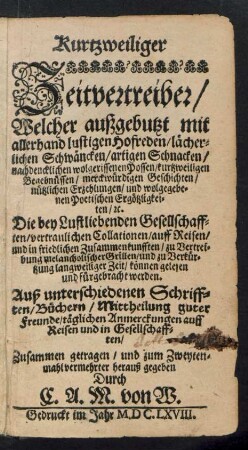 Kurtzweiliger
Zeitvertreiber/
Welcher außgebutzt mit
allerhand lustigen Hofreden/lächer-
lichen Schwäncken/artigen Schnacken/
nachdencklichen wolgerissenen Possen/kurtzweiligen
Begebnüssen/ merckwürdigen Geschichten/
nützlichen Erzehlungen/ und wolgegebe-
nen Poetischen Ergötzligkei-
ten/ ꝛc.
Die bey Lustliebenden Gesellschaff-
ten/vertraulichen Collationen/auff Reisen/
und in friedlichen Zusammenkunfften/ zu Vertrei-
bung melancholischer Grillen/und zu Verkür-
tzung langweiliger Zeit/ können gelesen
und fürgebracht werden.
Auß unterschiedenen Schriff-
ten/Büchern/ Mittheilung guter
Freunde/täglichen Anmerckungen auff
Reisen und in Gesellschaff-
ten/
Zusammen getragen/ und zum Zweyten-
mahl vermehrter herauß gegeben
Durch
C. A. M. von W.
Gedruckt im Jahr M.DC.LXVIII.